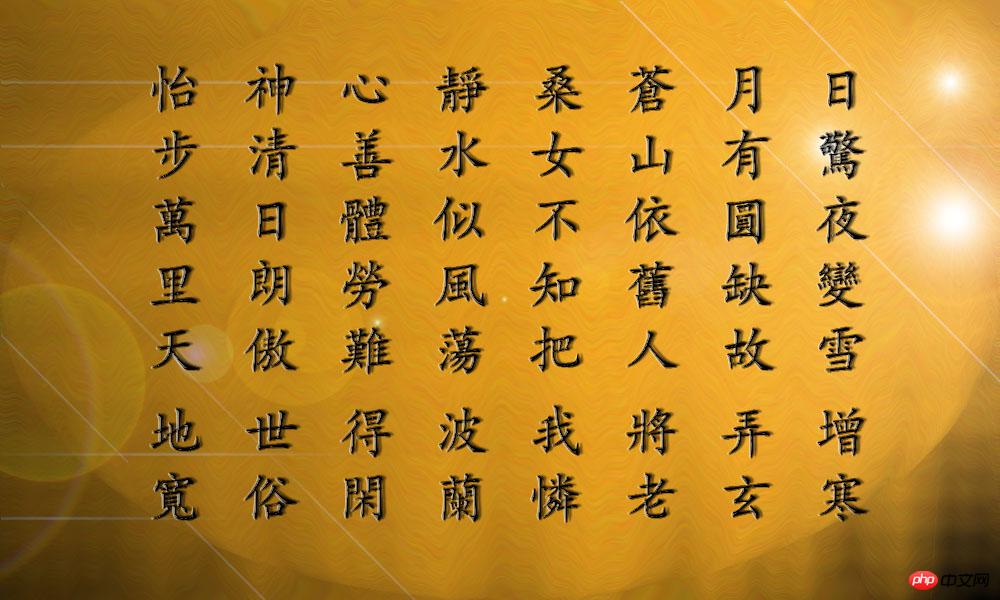 日驚夜變雪增寒
月有圓缺故弄玄
蒼山依舊人將老
桑女不知把我憐
靜水似風蕩波蘭
心善體勞難得閑
神清日朗傲世俗
怡步萬里天地寬
php 中文网